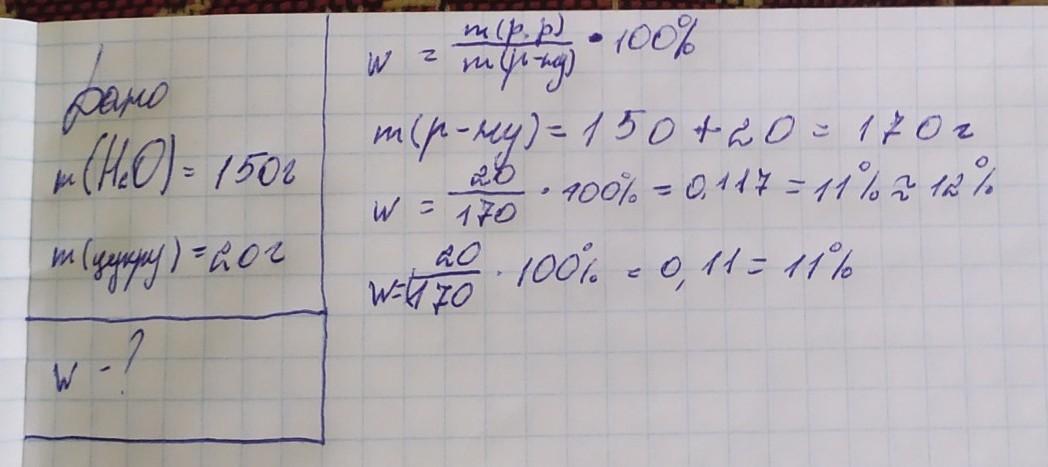 Дано
m(H₂O) = 150г
m(цукру) = 20г
w - ?
w = m(р.р)/m(р-ну) • 100%
m(р-ну) = 150 + 20 = 170г
w = 20/170 · 100% = 0.117 = 11% ≈ 12%
w = 20/170 · 100% = 0,11 = 11%